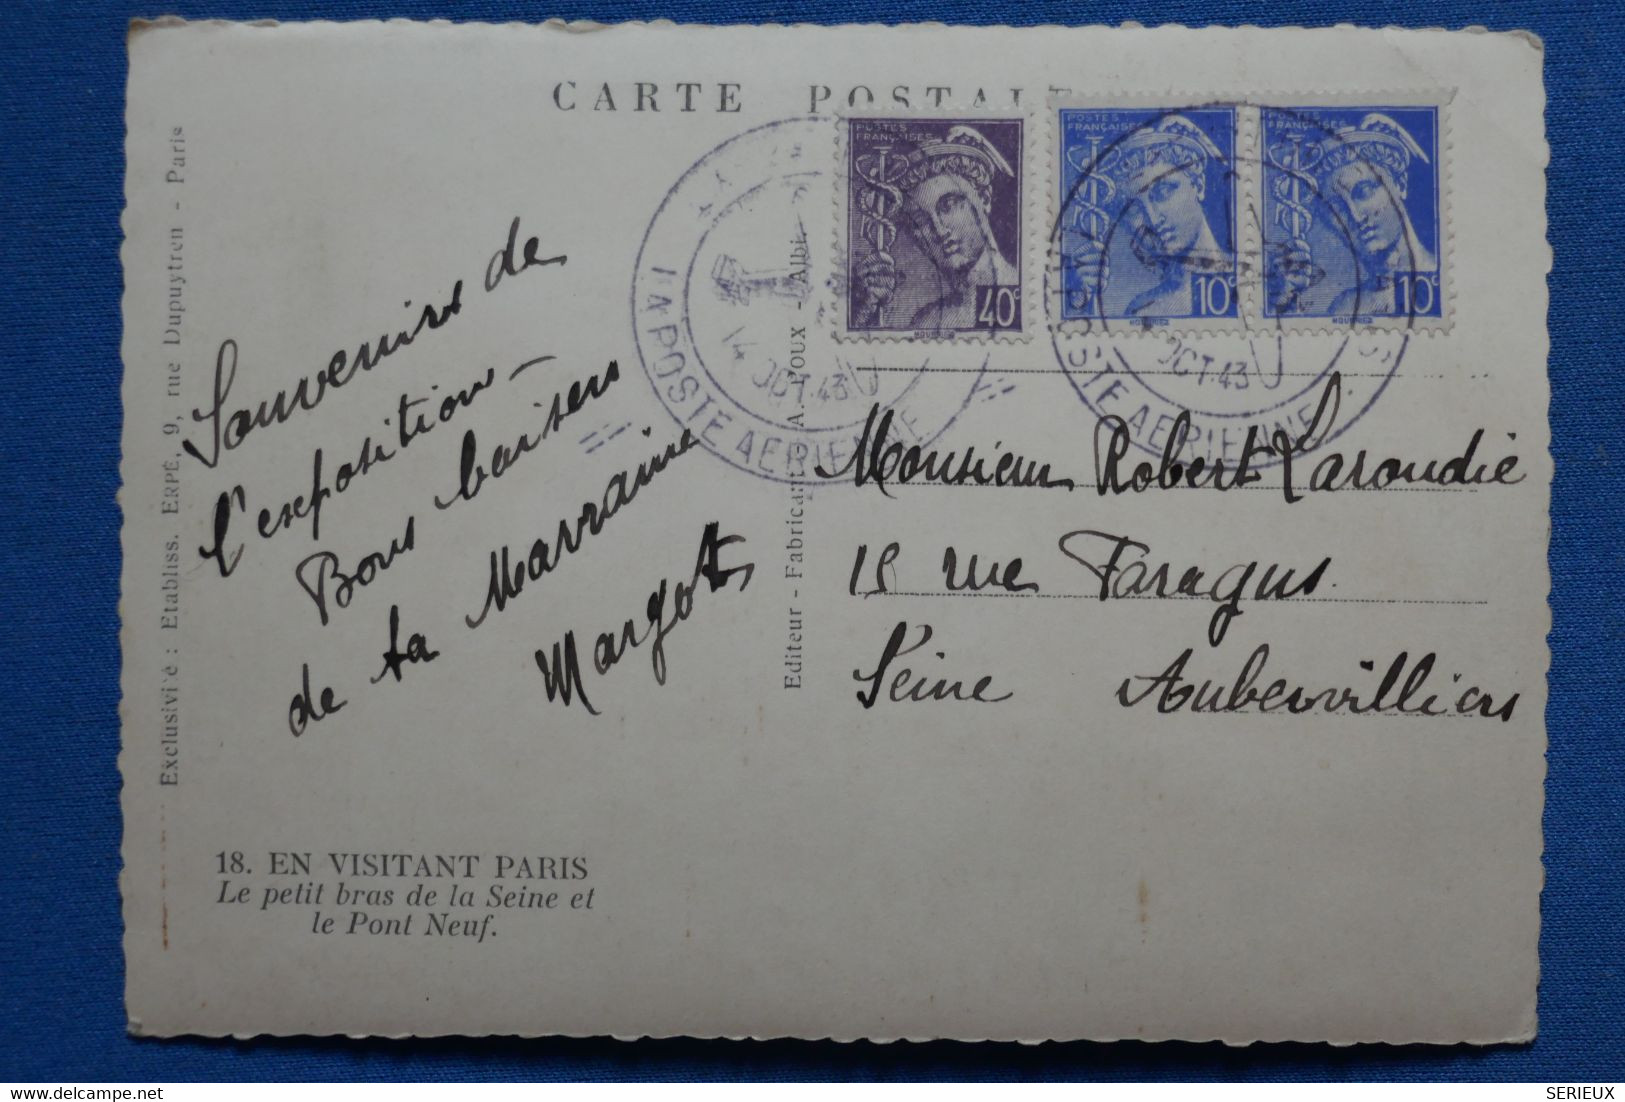 CARTE POSTALE
POSTES FRANÇAISES
40c
POSTES FRANÇAISES
10c
10c
POSTE AERIENNE
14 OCT.43
POSTE AERIENNE
OCT.43
Souvenirs de
l'exposition -
Bons baisers
de ta Marraine
Margot
Monsieur Robert Laroudie
rue Faragus
Seine Aubervilliers
Exclusivité : Etabliss. ERPÉ, 9, rue Dupuytren - Paris
Editeur - Fabricant : A. - Albi.
18. EN VISITANT PARIS
Le petit bras de la Seine et
le Pont Neuf.
SERIEUX